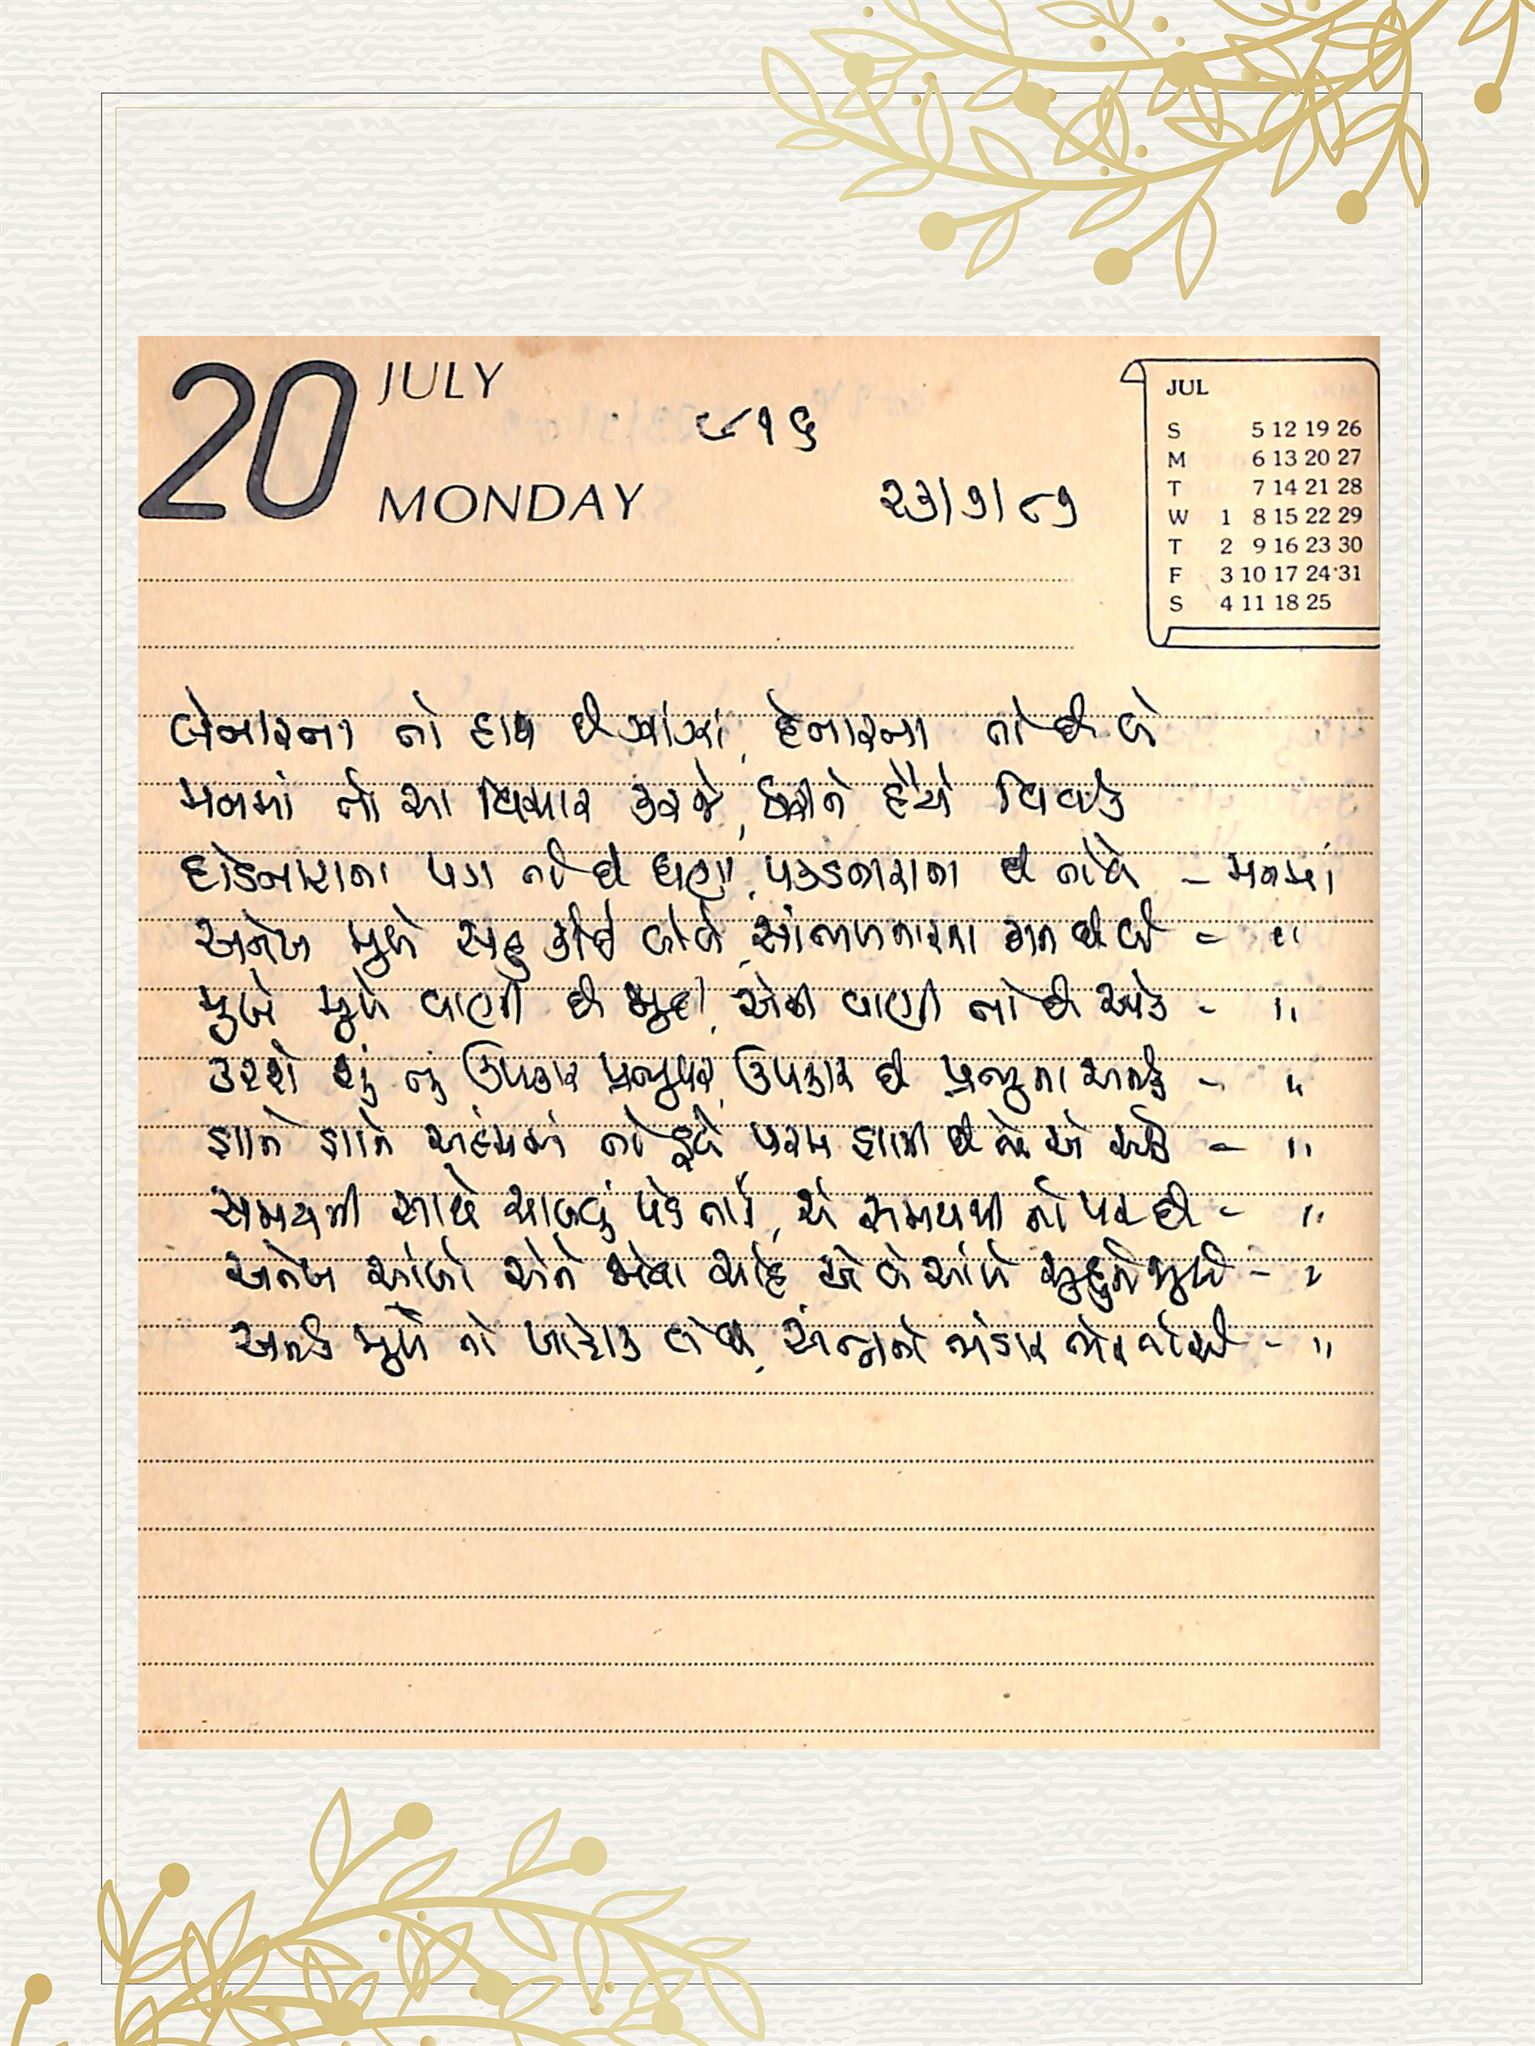 20 JULY
૯૧૬
MONDAY
૨૩/૭/૮૭
JUL
S 5 12 19 26
M 6 13 20 27
T 7 14 21 28
W 1 8 15 22 29
T 2 9 16 23 30
F 3 10 17 24 31
S 4 11 18 25
લેનારના તો હાથ છે ઝાઝાં, દેનારના તો છે બે
મનમાં તો આ વિચાર કરજે, ધરીને હૈયે વિવેક
દોડનારાના પગ તો છે ઘણાં, પકડનારાના છે તો બે - મનમાં
અનેક મુખે સહુ કોઈ બોલે, સાંભળનારના કાન છે બે - "
મુખે મુખે વાણી છે જુદી, એની વાણી તો છે એક - "
કરશે શું તું ઉપકાર પ્રભુપર, ઉપકાર છે પ્રભુના અનેક - "
જ્ઞાને જ્ઞાને અહંમમાં તો ડૂબે પરમ જ્ઞાની છે જે એ એક - "
સમયની સાથે ચાલવું પડે તારે, એ સમયથી તો પર છે - "
અનેક આંખો એને જોવા ચાહે એ બે આંખે સહુને જુએ - "
અનેક મુખે તો ખોરાક લેવાયે, અન્નનો ભંડાર